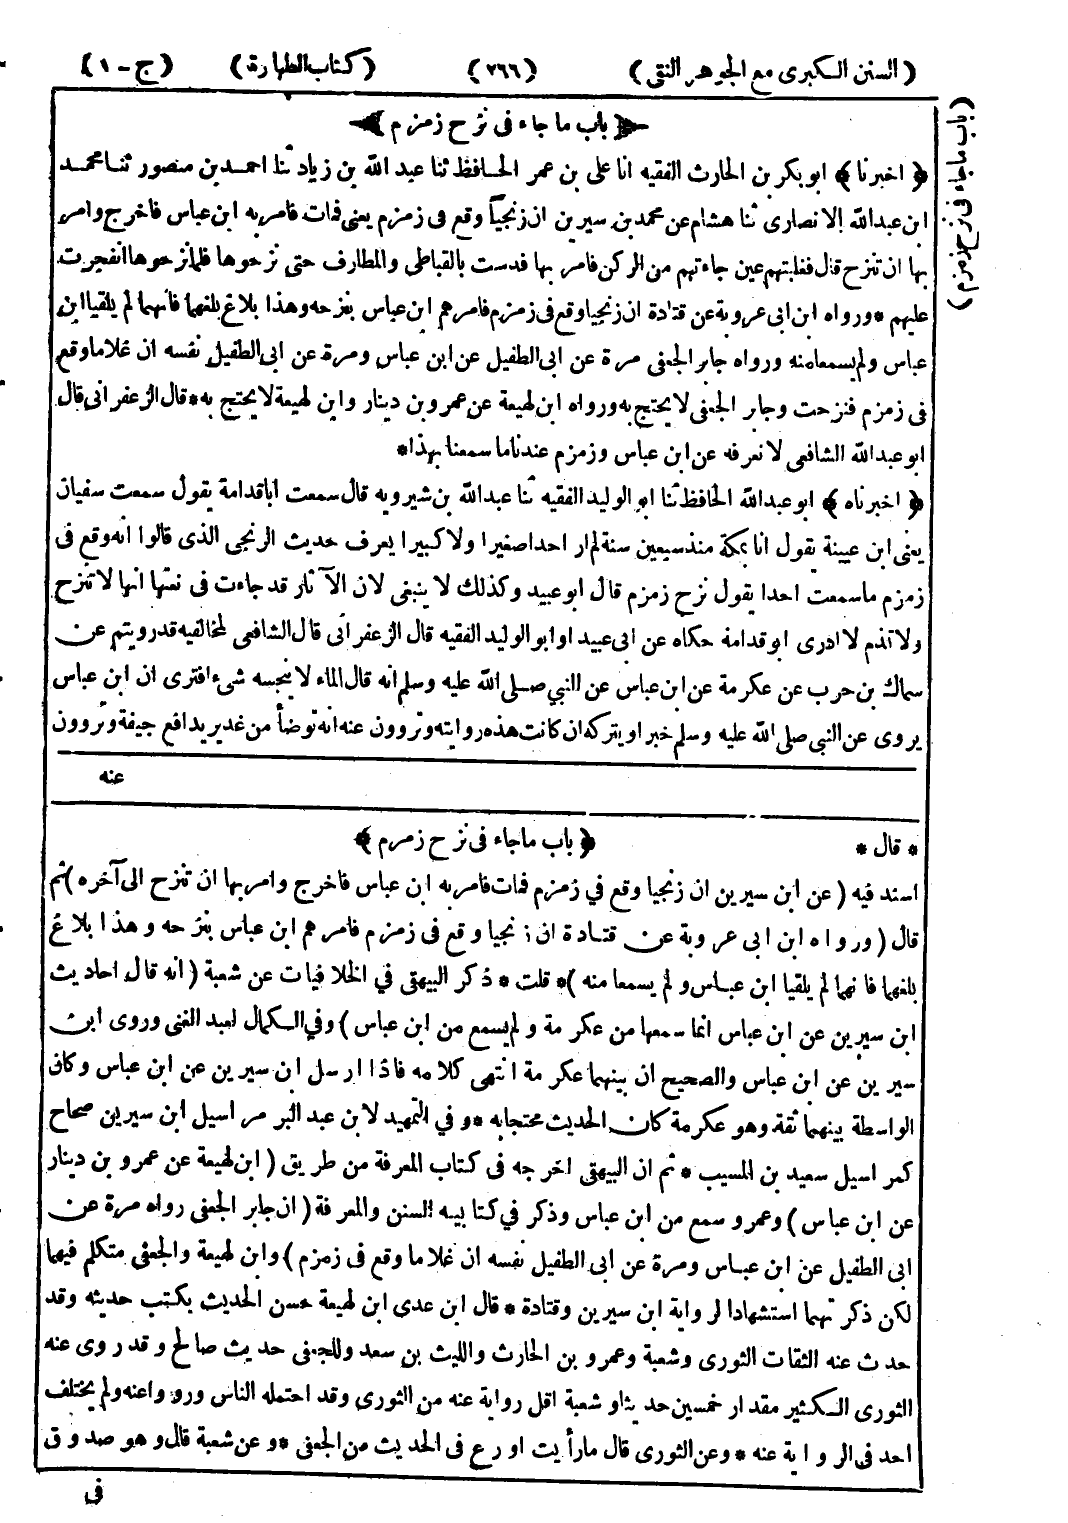 (السنن الكبرى مع الجوهر النقى) (٢٦٦) (كتاب الطهارة) (ج - ١)
(باب ماجاء فى نزح زمزم)
﴿باب ما جاء فى نزح زمزم﴾
﴿اخبرنا﴾ ابو بكر بن الحارث الفقيه انا على بن عمر الحافظ ثنا عبد الله بن زياد ثنا احمد بن منصور ثنا محمد
ابن عبدالله الانصارى ثنا هشام عن محمد بن سيرين ان زنجيا وقع فى زمزم يعنى فمات فامر به ابن عباس فاخرج وامر
بها ان تنزح قال فغلبتهم عين جاءتهم من الركن فامر بها فدست بالقباطى والمطارف حتى نزحوها فلما نزحوها انفجرت
عليهم *ورواه ابن ابى عروبة عن قتادة ان زنجيا وقع فى زمزم فامرهم ابن عباس بنزحه وهذا بلاغ بلغهما فانهما لم يلقيا ابن
عباس ولم يسمعا منه ورواه جابر الجعفى مرة عن ابى الطفيل عن ابن عباس ومرة عن ابى الطفيل نفسه ان غلاما وقع
فى زمزم فنزحت وجابر الجعفى لا يحتج به ورواه ابن لهيعة عن عمرو بن دينار وابن لهيعة لا يحتج به*قال الزعفرانى قال
ابو عبدالله الشافعى لا نعرفه عن ابن عباس وزمزم عندنا ما سمعنا بهذا*
﴿اخبرناه﴾ ابو عبدالله الحافظ ثنا ابو الوليد الفقيه ثنا عبدالله بن شيرويه قال سمعت اباقدامة يقول سمعت سفيان
يعنى ابن عيينة يقول انا بمكة منذ سبعين سنة لم ار احدا صغيرا ولا كبيرا يعرف حديث الزنجى الذى قالوا انه وقع فى
زمزم ما سمعت احدا يقول نزح زمزم قال ابو عبيد وكذلك لا ينبغى لان الآثار قد جاءت فى نعتها انها لا تنزح
ولا تذم لا ادرى ابو قدامة حكاه عن ابى عبيد او ابو الوليد الفقيه قال الزعفرانى قال الشافعى لمخالفيه قد رويتم عن
سماك بن حرب عن عكرمة عن ابن عباس عن النبي صلى الله عليه وسلم انه قال الماء لا ينجسه شىء افترى ان ابن عباس
يروى عن النبى صلى الله عليه وسلم خبرا ويتركه ان كانت هذه روايته وتروون عنه انه توضأ من غدير يدافع جيفة وتروون
عنه
* قال * ﴿باب ماجاء فى نزح زمزم﴾
اسند فيه (عن ابن سيرين ان زنجيا وقع في زمزم فمات فامر به ابن عباس فاخرج وامر بها ان تنزح الى آخره) ثم
قال (ورواه ابن ابى عروبة عن قتادة ان زنجيا وقع فى زمزم فامرهم ابن عباس بنزحه وهذا بلاغ
بلغهما فانهما لم يلقيا ابن عباس ولم يسمعا منه)* قلت * ذكر البيهقى في الخلافيات عن شعبة (انه قال احاديث
ابن سيرين عن ابن عباس انما سمعها من عكرمة ولم يسمع من ابن عباس) وفي الكمال لعبد الغنى وروى ابن
سيرين عن ابن عباس والصحيح ان بينهما عكرمة انتهى كلامه فاذا ارسل ابن سيرين عن ابن عباس وكان
الواسطة بينهما ثقة وهو عكرمة كان الحديث محتجا به *وفي التمهيد لابن عبد البر مراسيل ابن سيرين صحاح
كمراسيل سعيد بن المسيب * ثم ان البيهقى اخرجه فى كتاب المعرفة من طريق (ابن لهيعة عن عمرو بن دينار
عن ابن عباس) وعمرو سمع من ابن عباس وذكر في كتابيه السنن والمعرفة (ان جابر الجعفى رواه مرة عن
ابى الطفيل عن ابن عباس ومرة عن ابى الطفيل نفسه ان غلاما وقع فى زمزم) وابن لهيعة والجعفى متكلم فيهما
لكن ذكرتهما استشهادا لرواية ابن سيرين وقتادة * قال ابن عدى ابن لهيعة حسن الحديث يكتب حديثه وقد
حدث عنه الثقات الثورى وشعبة وعمرو بن الحارث والليث بن سعد وللجعفى حديث صالح وقد روى عنه
الثورى الكثير مقدار خمسين حديثا وشعبة اقل رواية عنه من الثورى وقد احتمله الناس ورووا عنه ولم يختلف
احد فى الرواية عنه * وعن الثورى قال ما رأيت اورع فى الحديث من الجعفى *وعن شعبة قال وهو صدوق
فى